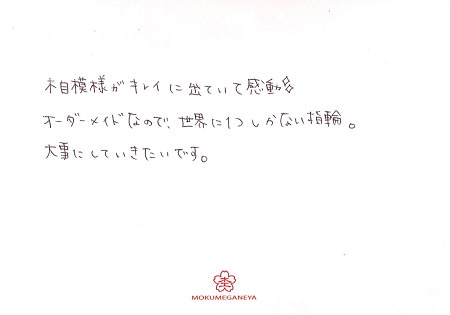 木目模様がキレイに出ていて感動✨
オーダーメイドなので、世界に1つしかない指輪。
大事にしていきたいです。
杢
MOKUMEGANEYA